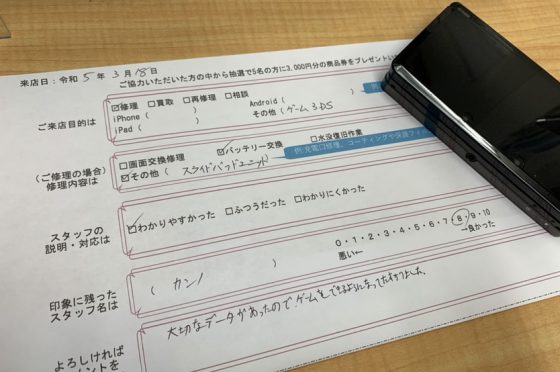 来店日：令和 5 年 3 月 18 日
ご協力いただいた方の中から抽選で5名の方に3,000円分の商品券をプレゼント
ご来店目的は
☑修理 □買取 □再修理 □相談
iPhone ( ) Android ( )
iPad ( ) その他 (ゲーム3DS
（ご修理の場合）
修理内容は
□画面交換修理 ☑バッテリー交換 □水没復旧作業
☑その他 ( スライドパッドユニット)
例:充電口修理、コーティングや保護フィ
スタッフの
説明・対応は
☑わかりやすかった □ふつうだった □わかりにくかった
0・1・2・3・4・5・6・7・8・9・10
悪い← →良かった
印象に残った
スタッフ名は
( カンノ )
よろしければ
大切なデータがあったので、ゲームをできるようになってたすかりました。